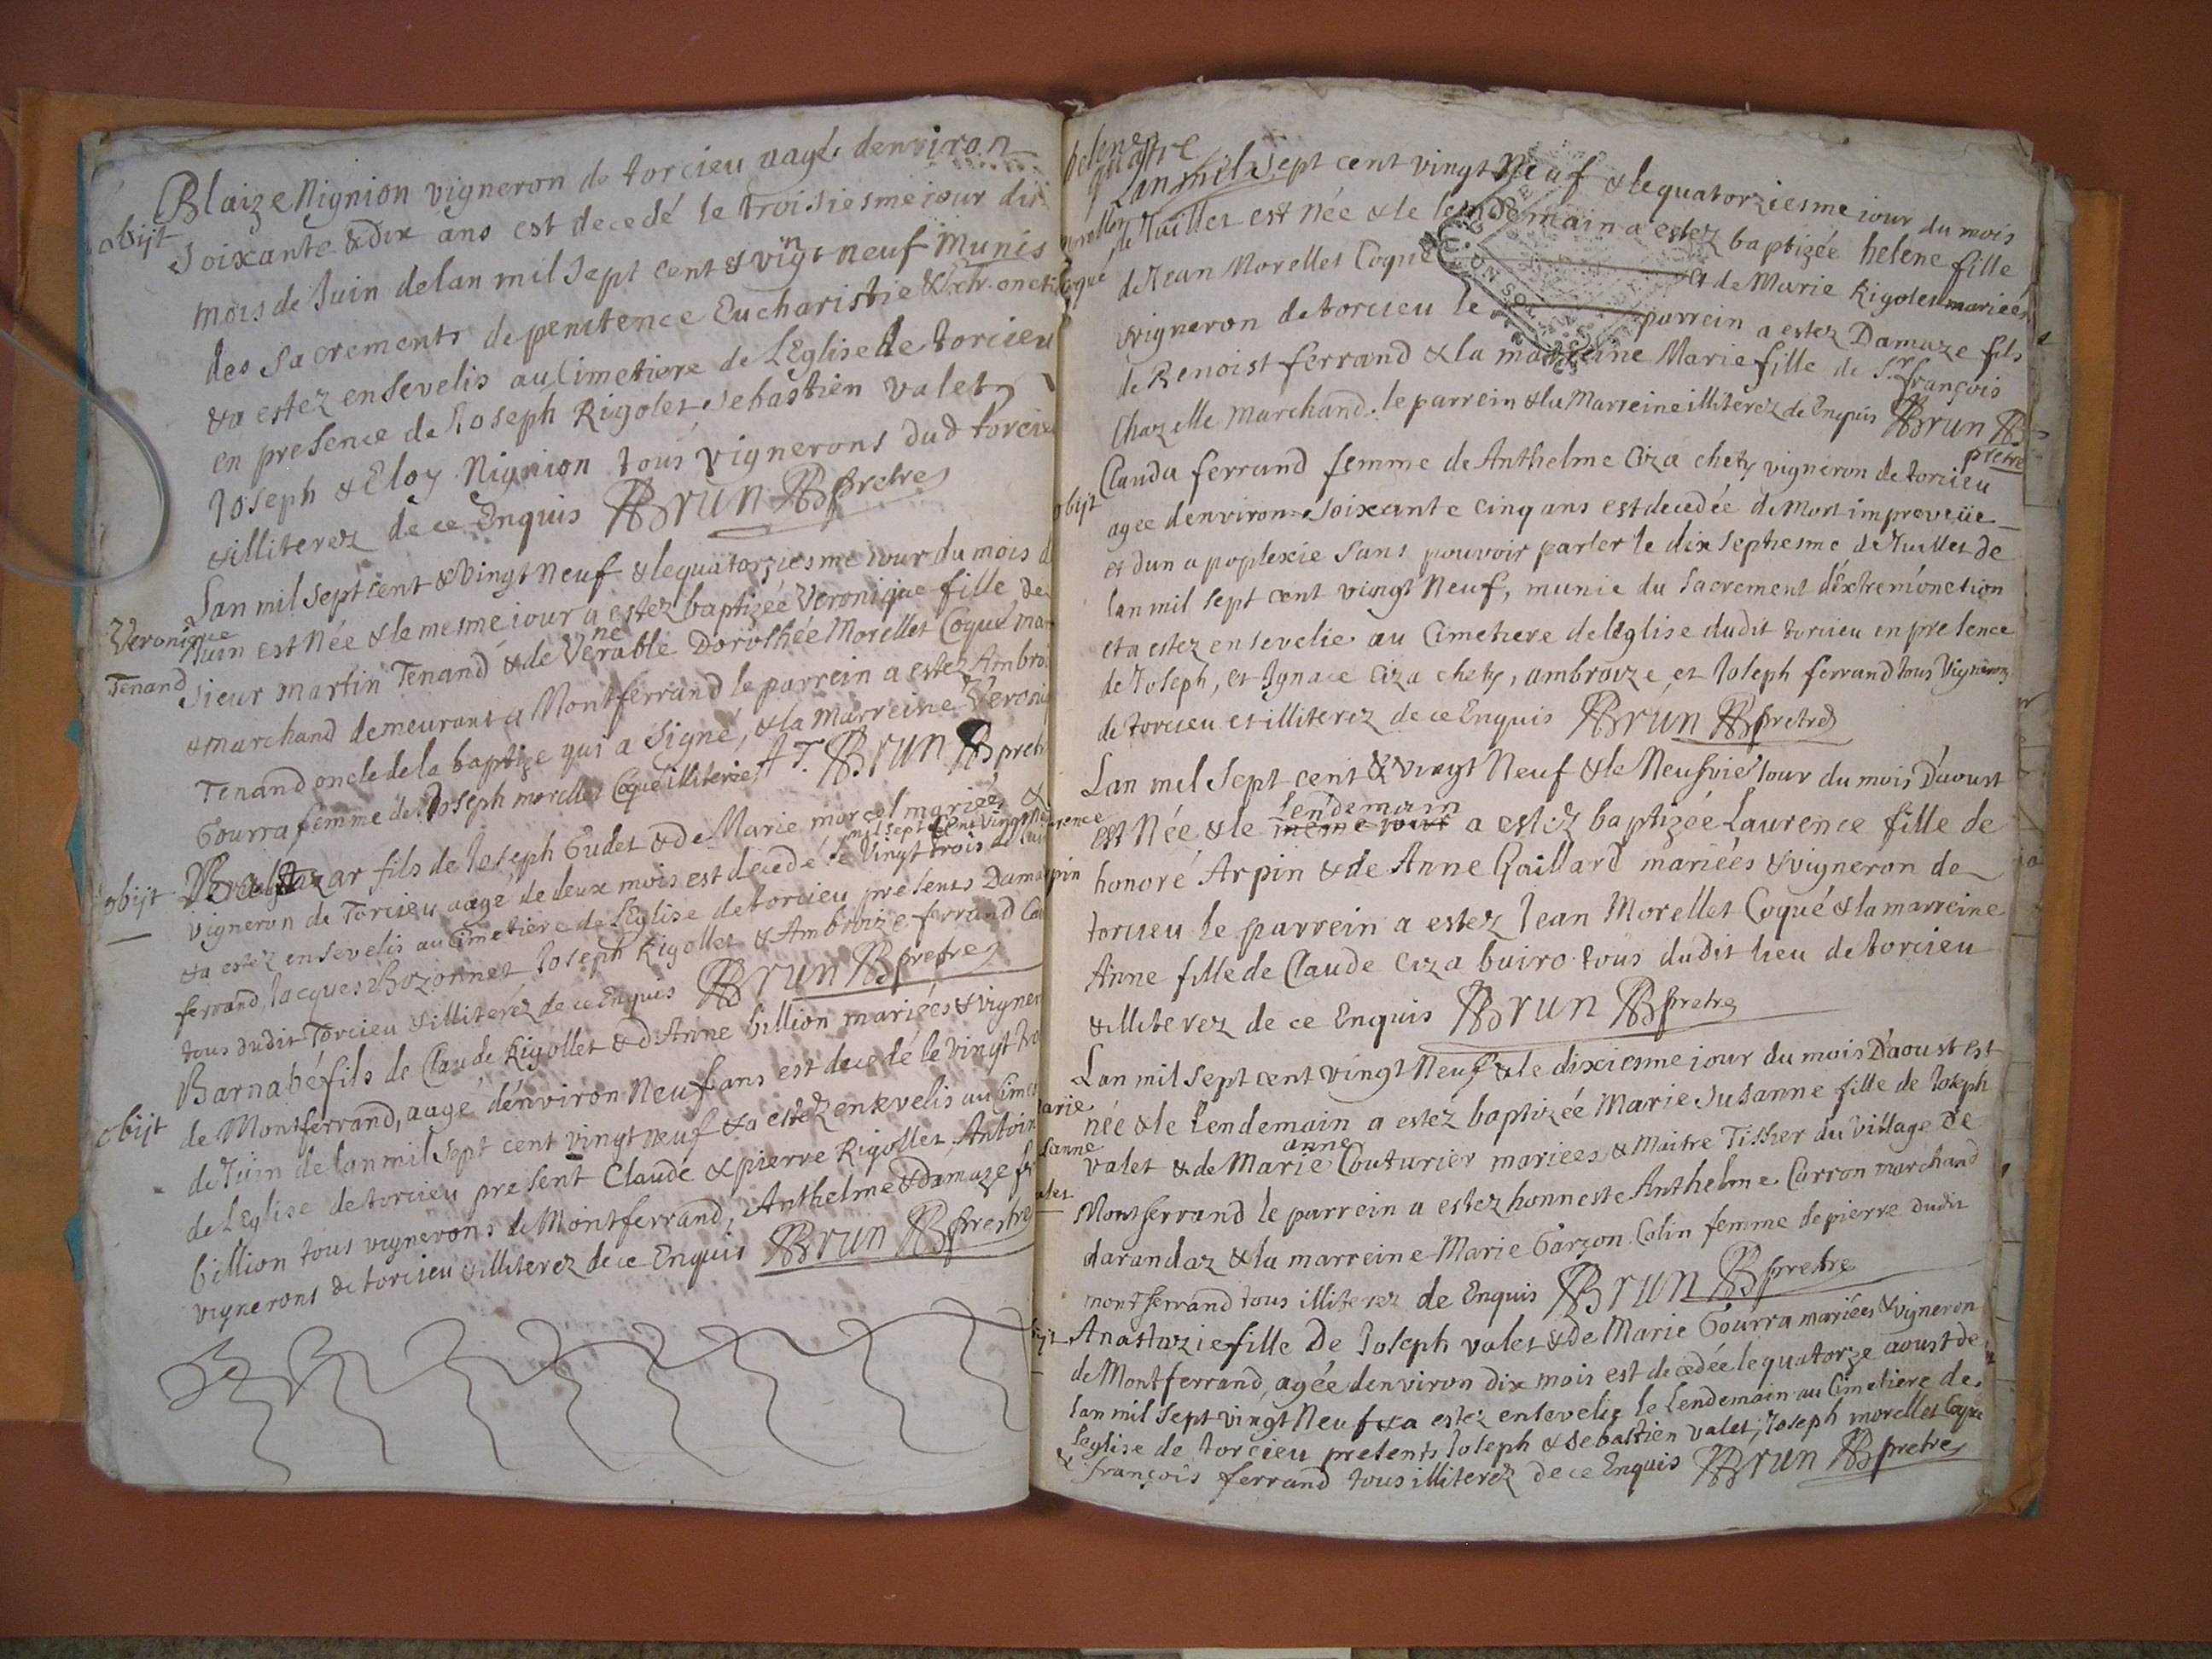 Blaize Nignion vigneron de torcieu aagé denviron
obijt
Soixante & dix ans est decedé le troisiesme iour du
mois de Juin de lan mil sept cent & vingt neuf Munis
des Sacrements de penitence Eucharistie & Extr. onct
& a estez ensevelis au Cimetiere de LEglise de torcieu
en presence de Joseph Rigolet Sebastien valet
Joseph & Eloy Nignion tous vignerons dud torcieu
& illiterez de ce Enquis Brun prestre
Lan mil sept cent & vingt neuf & le quatorziesme iour du mois d
Veronique
Tenand
Juin est Née & le mesme iour a estez baptizée Veronique fille de
Sieur martin Tenand & de Venerable Dorothée Morellet Coqué mar
& marchand demeurant a Montferrand le parrein a estez Ambroi
Tenand oncle de la baptize qui a Signé, & la Marreine Veroni
Gourra femme de Joseph morellet Coqué illiterée A T. Brun pretr
obijt
Baltazar fils de Joseph Gudet & de Marie morcel mariées &
vigneron de Torcieu aagé de deux mois est decedé le Vingt trois de Jui
mil sept cent vingt
& a estez ensevelis au Cimetiere de LEglise de torcieu presents Dama
ferrand, Jacques Bozonnet Joseph Rigollet & Ambroize ferrand
tous dudit Torcieu & illiterez de ce Enquis Brun pretre
Barnabé fils de Claude Rigollet & d Anne billion mariées & vigner
obijt
de Montferrand, aagé denviron Neuf ans est decedé le vingt tro
de Juin de lan mil sept cent vingt neuf & a estez ensevelis au Cime
de LEglise de torcieu present Claude & pierre Rigollet, Antoin
billion tous vignerons de Montferrand, Anthelme & damaze fe
vignerons de torcieu & illiterez de ce Enquis Brun prestre
helene
Lan mil Sept cent vingt Neuf & le quatorziesme iour du mois
morellet
coqué
de Juillet est Née & le lendemain a estez baptizée helene fille
de Jean Morellet Coqué & de Marie Rigolet mariées
vigneron de torcieu le parrein a estez Damaze fils
de Benoist ferrand & la marreine Marie fille de Sr. françois
Chazelle Marchand. le parrein & la Marreine illiterez de Enquis Brun
pretre
obijt
Clauda ferrand femme de Anthelme Ciza chety vigneron de torcieu
agee denviron Soixante cinq ans est decedée de Mort impreveüe
et dun apoplexie Sans pouvoir parler le dix septiesme de Juillet de
lan mil sept cent vingt Neuf, munie du Sacrement déxtremonction
et a estez ensevelie au Cimetiere de lEglise dudit torcieu en presence
de Joseph, et Ignace Ciza chety, ambroize, et Joseph ferrand tous Vignerons
de torcieu et illiterez de ce Enquis Brun pretre
Lan mil Sept cent & vingt Neuf & le Neufvie Jour du mois D'aoust
lendemain
est Née & le mesme iour a estez baptizée Laurence fille de
honoré Arpin & de Anne Gaillard mariées & vigneron de
torcieu le parrein a estez Jean Morellet Coqué & la marreine
Anne fille de Claude Ciza buiro tous dudit lieu de torcieu
& illiterez de ce Enquis Brun pretre
Lan mil sept cent vingt Neuf & le dixiesme iour du mois D'aoust est
née & le lendemain a estez baptizée Marie Susanne fille de Joseph
anne
valet & de Marie Couturier mariees & Maitre Tissier du village de
Montferrand le parrein a estez honneste Anthelme Carron marchand
darandaz & la marreine Marie Garzon Colin femme de pierre dudit
montferrand tous illiterez de Enquis Brun pretre
Anastazie fille de Joseph valet & de Marie Gourra mariées & vigneron
de Montferrand, agée denviron dix mois est decedée le quatorze aoust de
lan mil Sept vingt Neuf & a estez ensevelie le lendemain au Cimetiere de
leglise de torcieu presents Joseph & Sebastien valet, Joseph morellet Coqué
& françois ferrand tous illiterez de ce Enquis Brun pretre